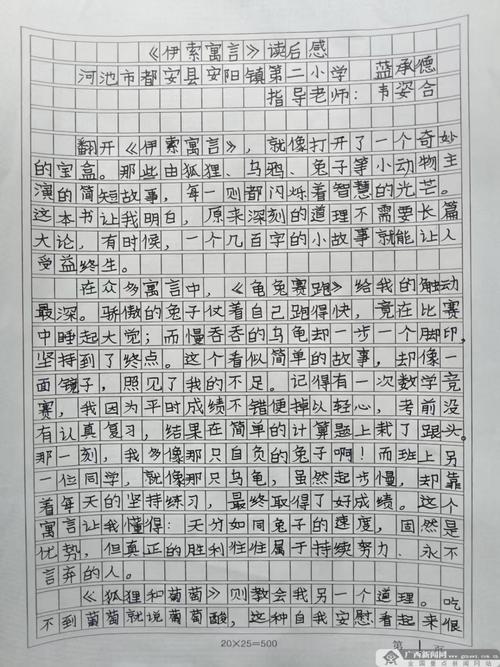 《伊索寓言》读后感
河池市都安县安阳镇第二小学 蓝承德
指导老师：韦姿合
翻开《伊索寓言》，就像打开了一个奇妙
的宝盒。那些由狐狸、乌鸦、兔子等小动物主
演的简短故事，每一则都闪烁着智慧的光芒。
这本书让我明白，原来深刻的道理不需要长篇
大论，有时候，一个几百字的小故事就能让人
受益终生。
在众多寓言中，《龟兔赛跑》给我的触动
最深。骄傲的兔子仗着自己跑得快，竟在比赛
中睡起大觉；而慢吞吞的乌龟却一步一个脚印，
坚持到了终点。这个看似简单的故事，却像一
面镜子，照见了我的不足。记得有一次数学竞
赛，我因为平时成绩不错便掉以轻心，考前没
有认真复习，结果在简单的计算题上栽了跟头。
那一刻，我多像那只自负的兔子啊！而班上另
一位同学，就像那只乌龟，虽然起步慢，却靠
着每天的坚持练习，最终取得了好成绩。这个
寓言让我懂得：天分如同兔子的速度，固然是
优势，但真正的胜利往往属于持续努力、永不
言弃的人。
《狐狸和葡萄》则教会我另一个道理。吃
不到葡萄就说葡萄酸，这种自我安慰看起来很
20×25=500
第 1 页
广西新闻网
www.gxnews.com.cn